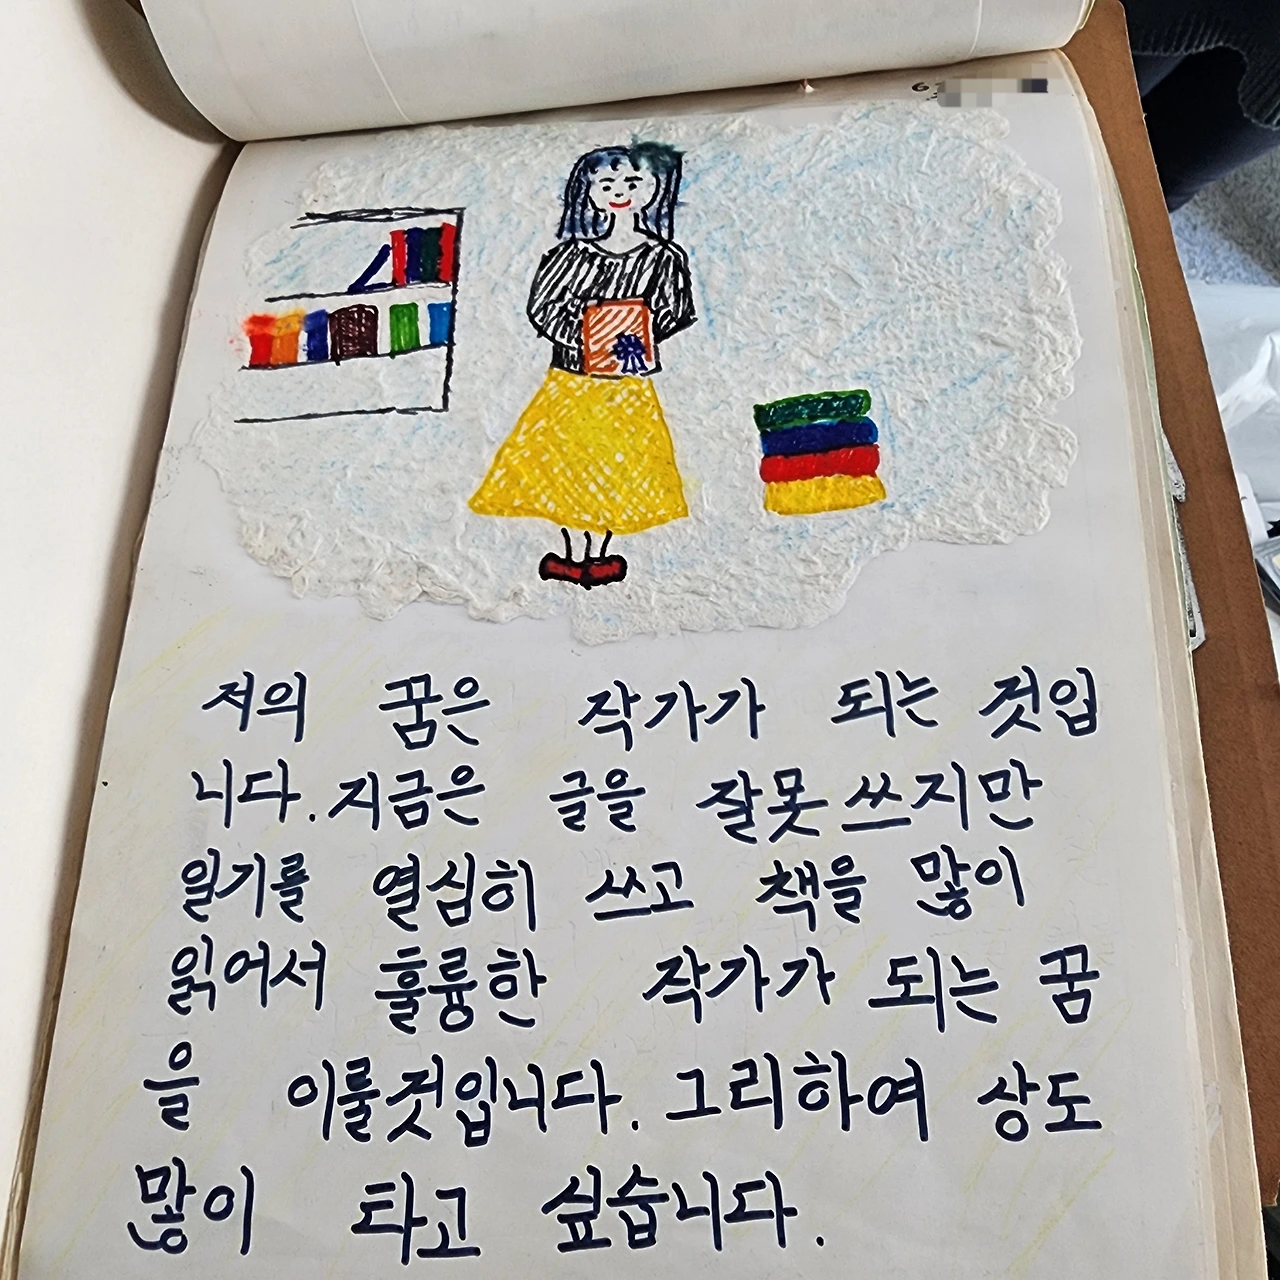 저의 꿈은 작가가 되는 것입
니다. 지금은 글을 잘못 쓰지만
일기를 열심히 쓰고 책을 많이
읽어서 훌륭한 작가가 되는 꿈
을 이룰것입니다. 그리하여 상도
많이 타고 싶습니다.